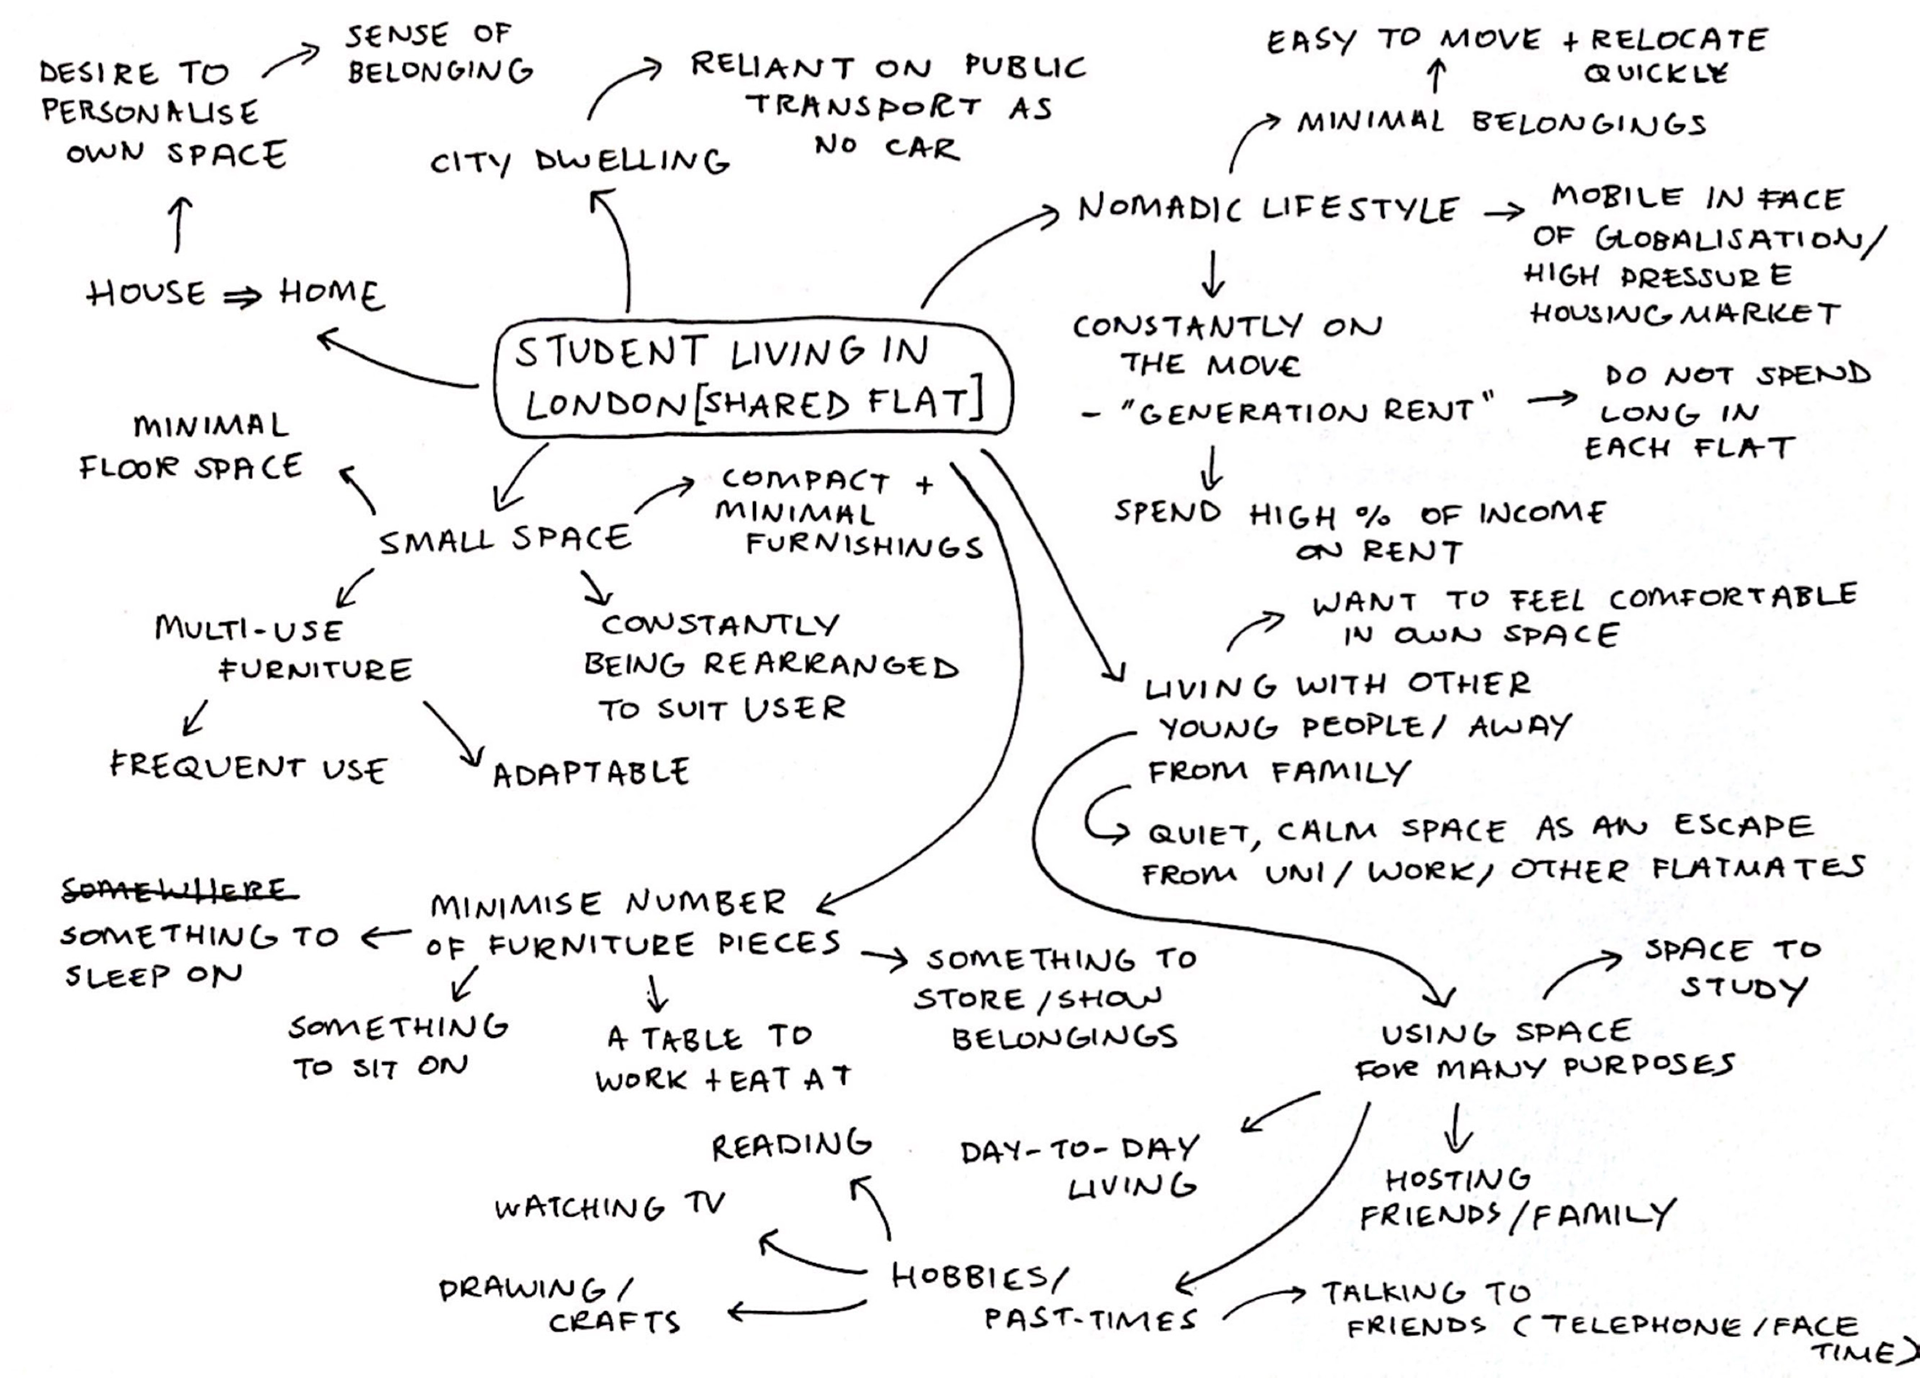 SENSE OF
BELONGING
DESIRE TO
PERSONALISE
OWN SPACE
HOUSE ⇒ HOME
CITY DWELLING
RELIANT ON PUBLIC
TRANSPORT AS
NO CAR
EASY TO MOVE + RELOCATE
QUICKLY
MINIMAL BELONGINGS
NOMADIC LIFESTYLE
MOBILE IN FACE
OF GLOBALISATION/
HIGH PRESSURE
HOUSING MARKET
CONSTANTLY ON
THE MOVE
- "GENERATION RENT"
DO NOT SPEND
LONG IN
EACH FLAT
SPEND HIGH % OF INCOME
ON RENT
STUDENT LIVING IN
LONDON [SHARED FLAT]
MINIMAL
FLOOR SPACE
SMALL SPACE
COMPACT +
MINIMAL
FURNISHINGS
MULTI-USE
FURNITURE
CONSTANTLY
BEING REARRANGED
TO SUIT USER
FREQUENT USE
ADAPTABLE
WANT TO FEEL COMFORTABLE
IN OWN SPACE
LIVING WITH OTHER
YOUNG PEOPLE / AWAY
FROM FAMILY
QUIET, CALM SPACE AS AN ESCAPE
FROM UNI / WORK / OTHER FLATMATES
MINIMISE NUMBER
OF FURNITURE PIECES
SOMEWHERE
SOMETHING TO
SLEEP ON
SOMETHING
TO SIT ON
A TABLE TO
WORK + EAT AT
SOMETHING TO
STORE / SHOW
BELONGINGS
SPACE TO
STUDY
USING SPACE
FOR MANY PURPOSES
DAY-TO-DAY
LIVING
HOSTING
FRIENDS / FAMILY
READING
WATCHING TV
DRAWING /
CRAFTS
HOBBIES/
PAST-TIMES
TALKING TO
FRIENDS (TELEPHONE / FACE
TIME)